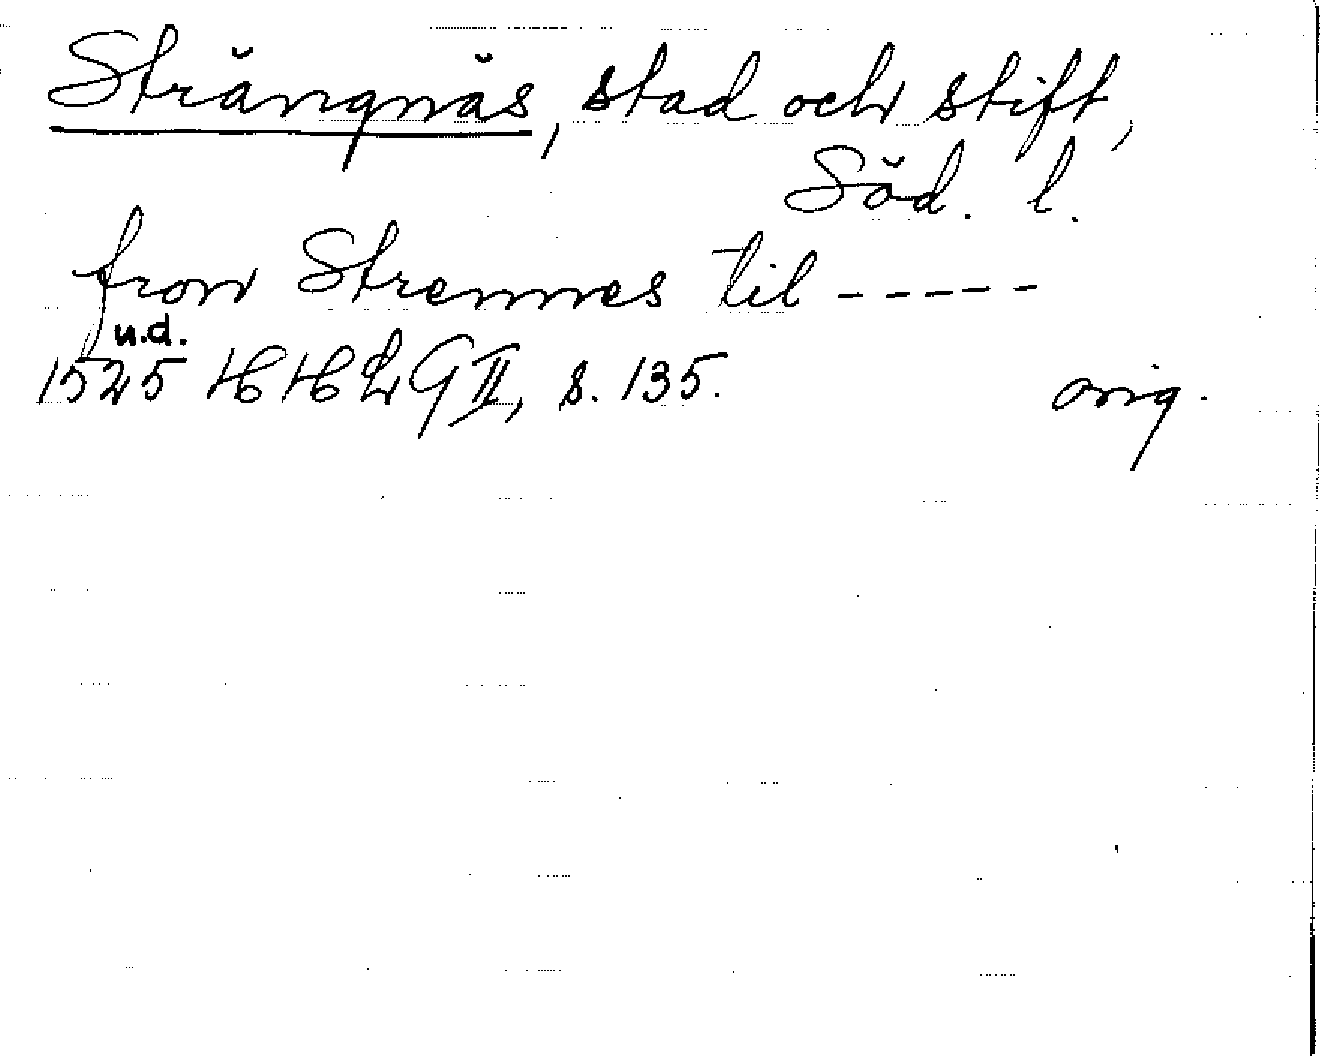 Strängnäs, stad och stift,
Söd. l.
fron Strennes til -----
u.d.
1525 HHLG II, s. 135. orig.